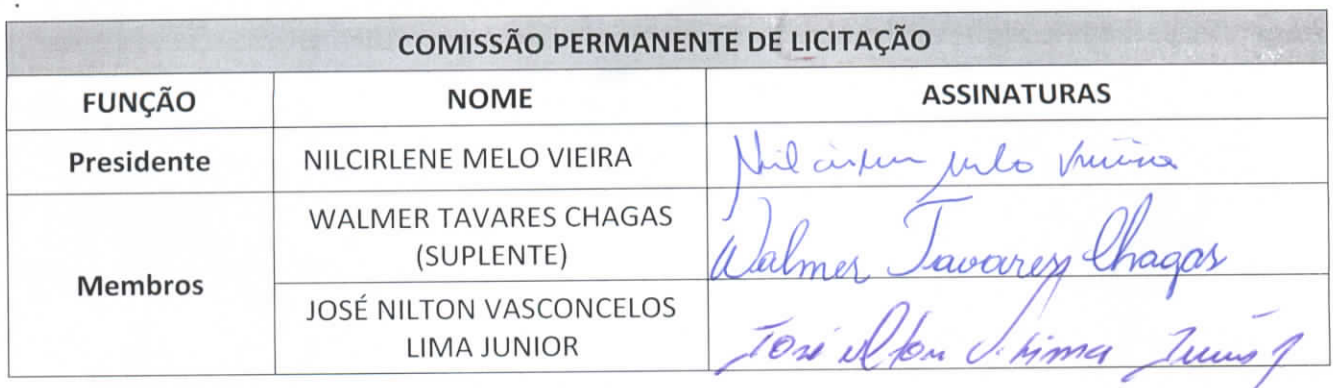 COMISSÃO PERMANENTE DE LICITAÇÃO
FUNÇÃO NOME ASSINATURAS
Presidente NILCIRLENE MELO VIEIRA Nilcirlene Melo Vieira
WALMER TAVARES CHAGAS
(SUPLENTE) Walmer Tavares Chagas
Membros
JOSÉ NILTON VASCONCELOS
LIMA JUNIOR José Nilton V. Lima Junior